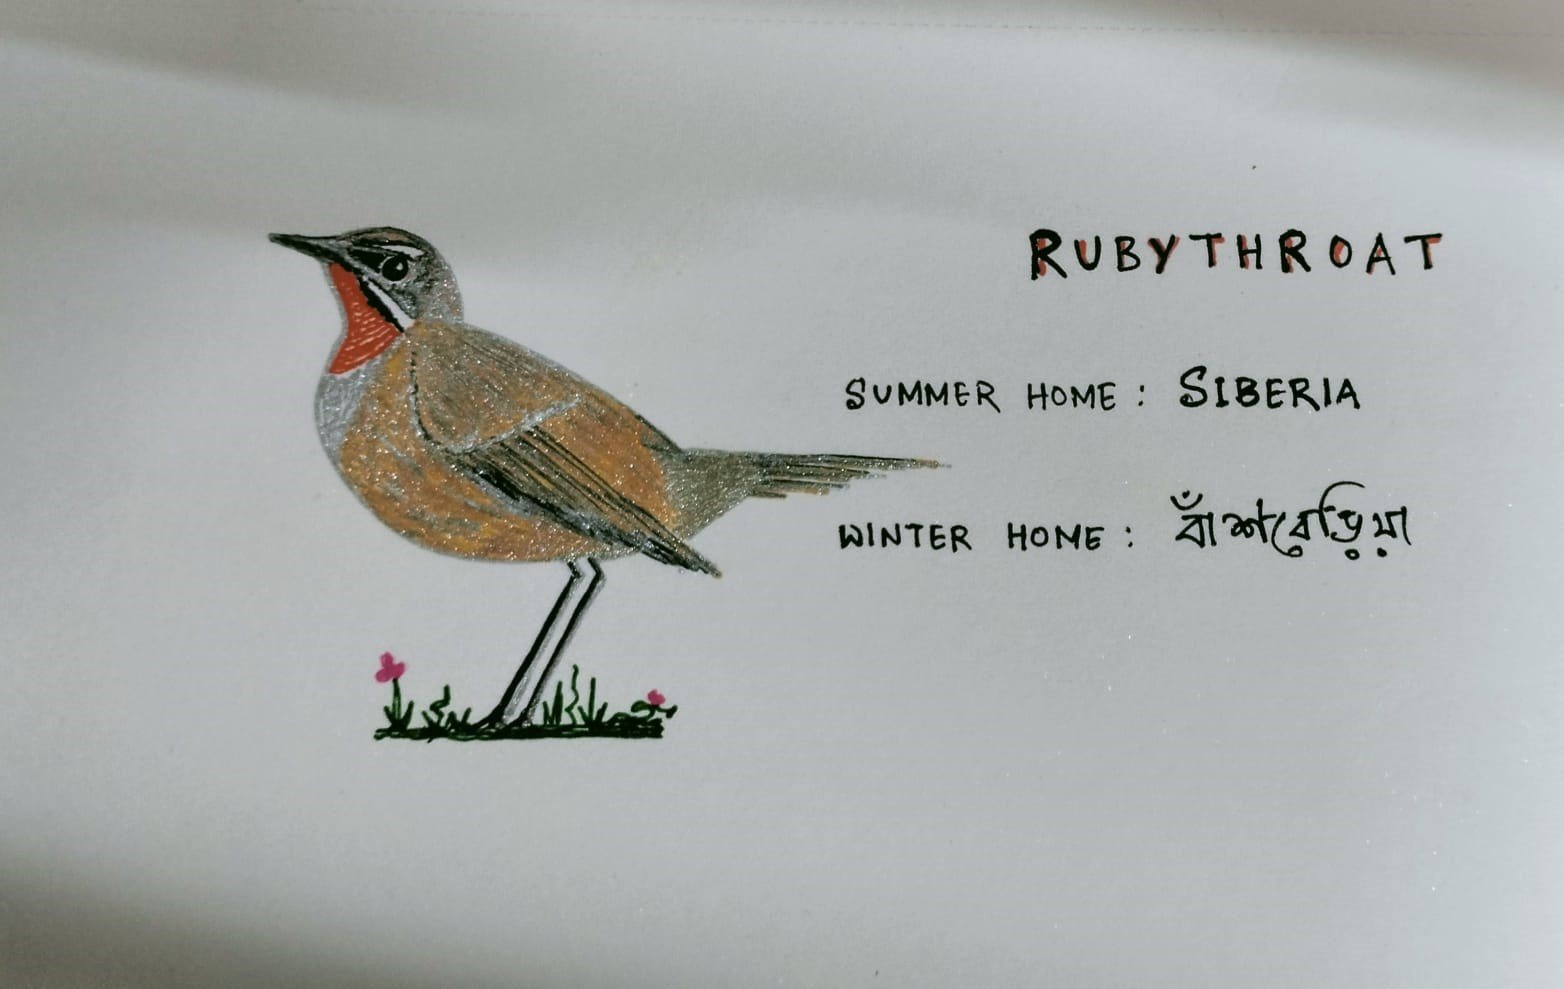 RUBYTHROAT
SUMMER HOME : SIBERIA
WINTER HOME : বাঁশবেড়িয়া